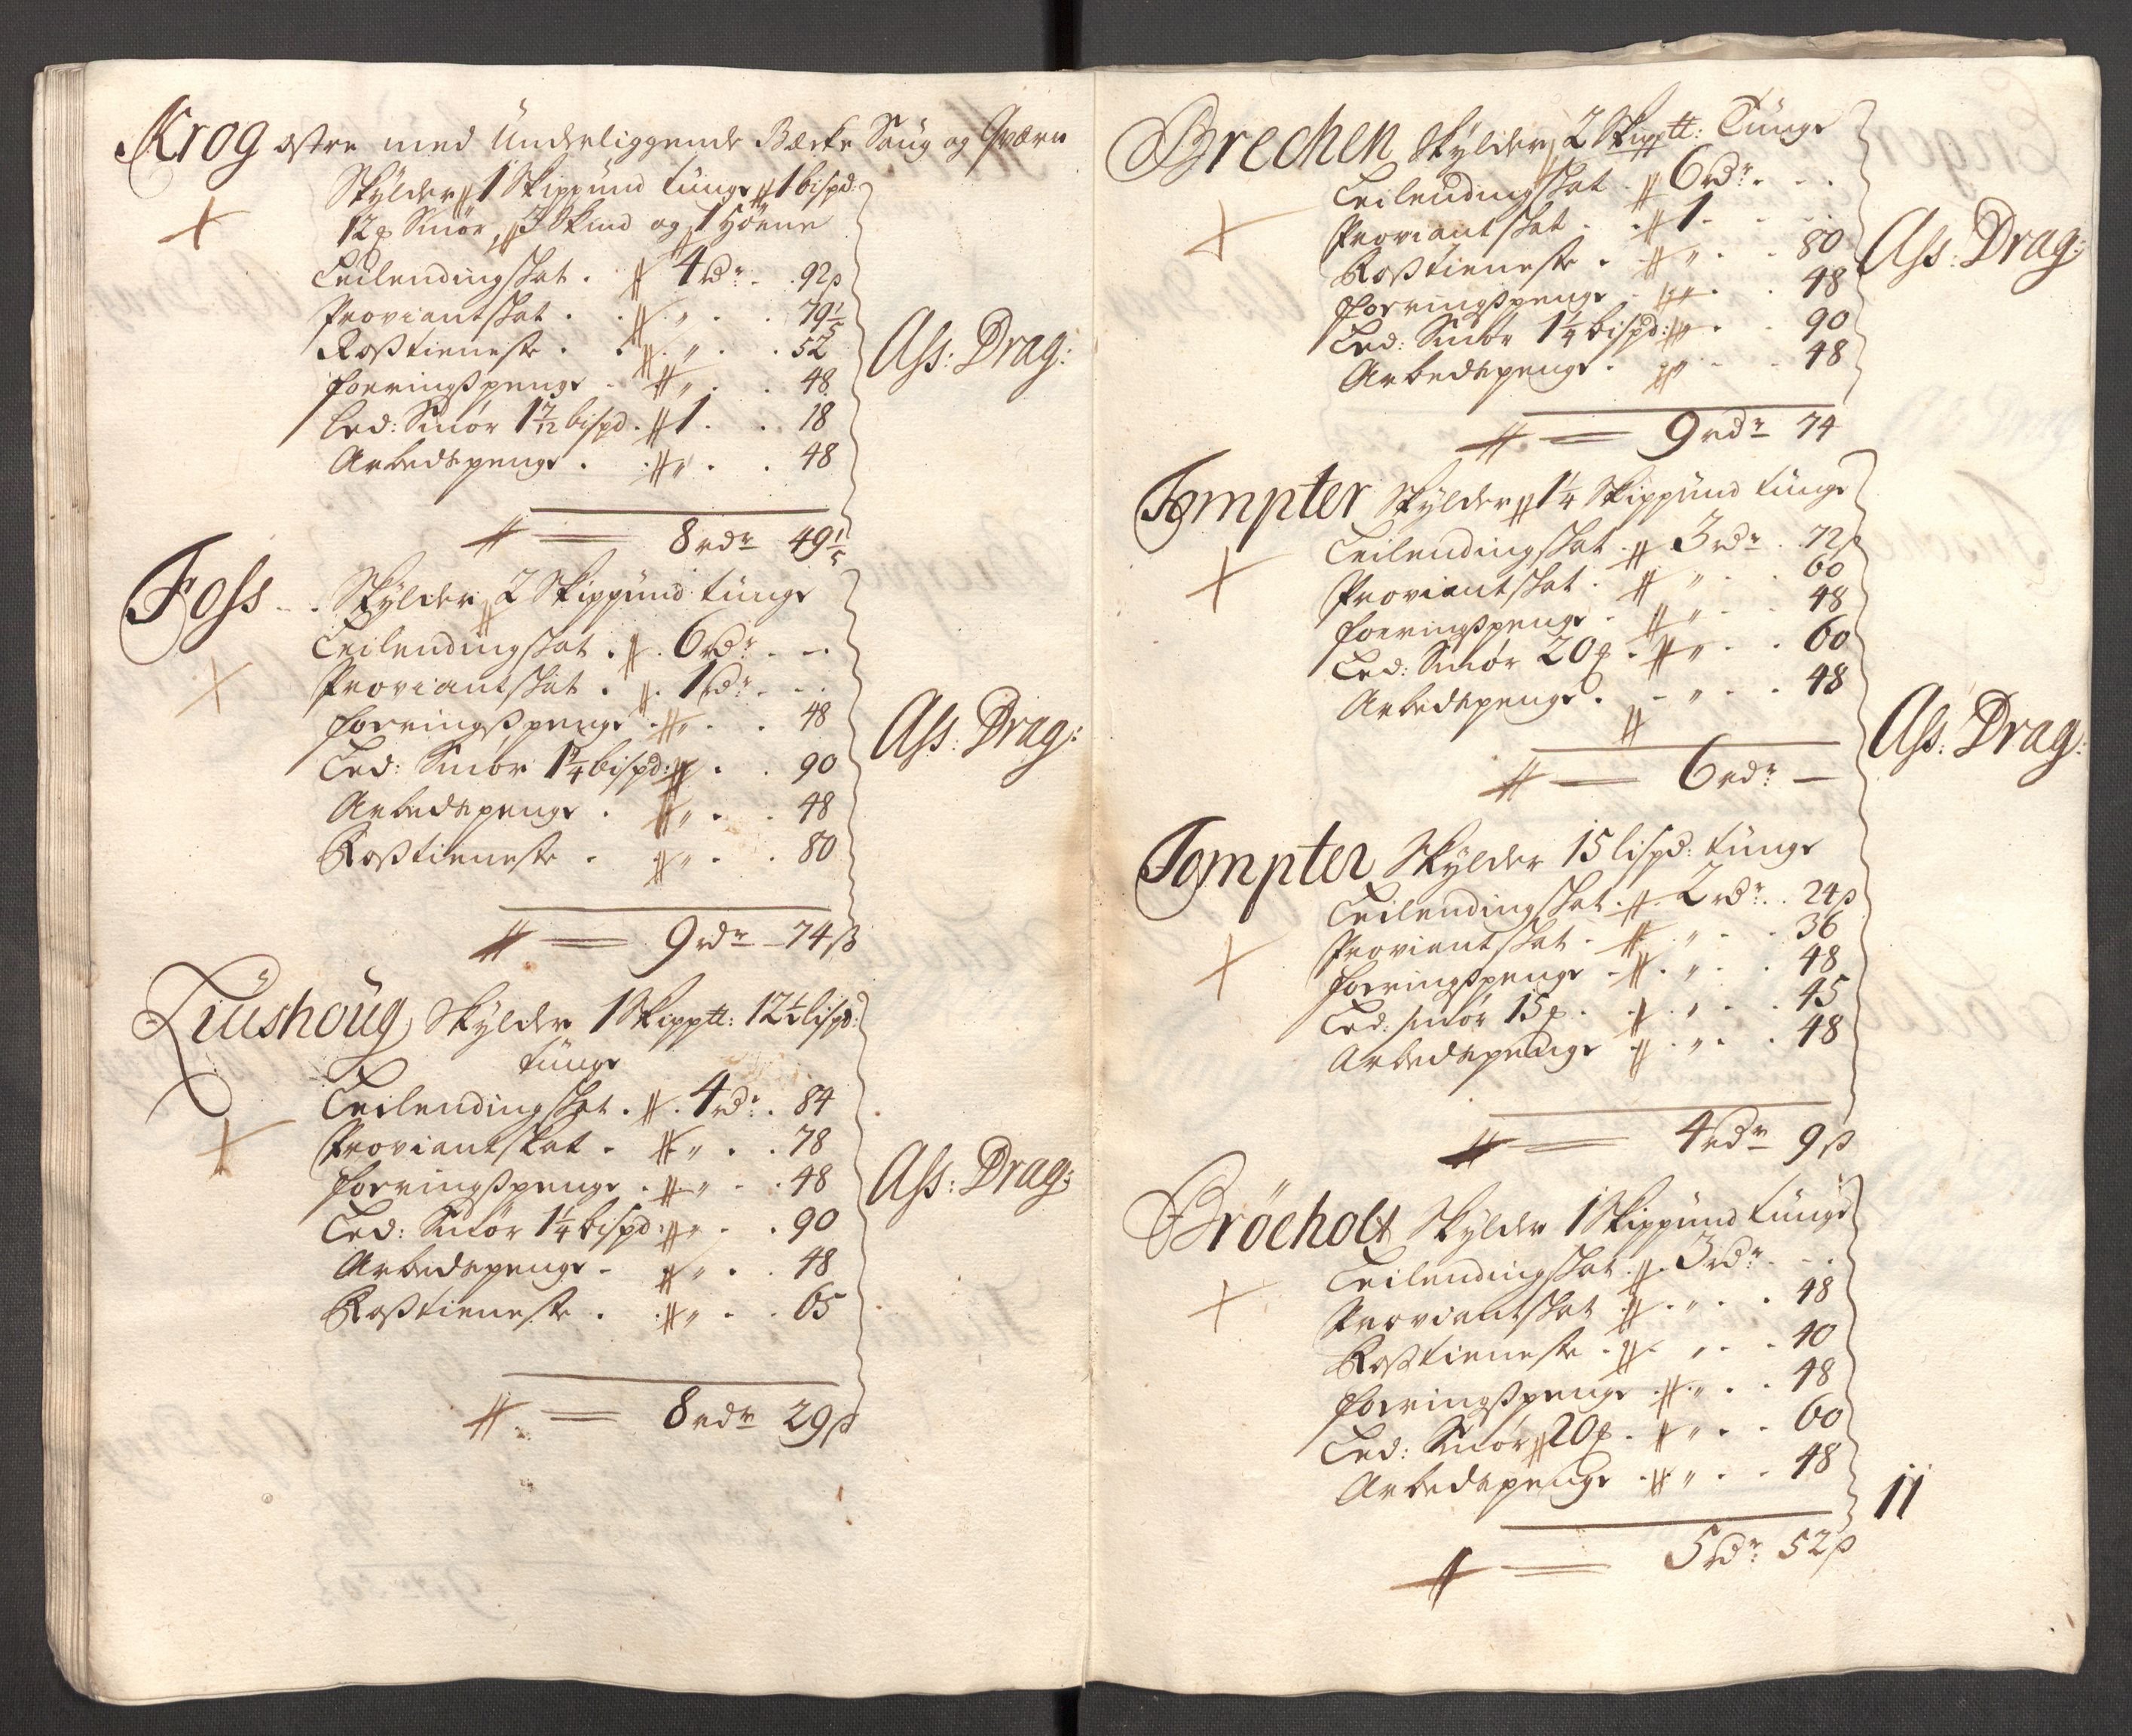 Krog østre med Underliggende Becke Saug og Qværn
Skylder 1 Skippund tunge 1 bispd:
12 p Smör, 3 Skind og 1 Höene
Leilendingsskat . 4 rdr . 92 β
Proviantskat . . „ . . 79 1/5
Rosstieneste . . „ . . 52
Foeringspenge . „ . . 48
Led: Smör 1 7/12 bispd . 1 . . 18
Arbedspenge . „ . . 48
8 rdr 49 1/5
Ass: Drag:
Foss . Skylder 2 Skippund tunge
Leilendingsskat . 6 rdr . –.
Proviantskat . 1 rdr . –.
Foeringspenge . „ . . 48
Led: Smör 1 1/4 bispd: . . 90
Arbedspenge . „ . . 48
Rosstieneste . „ . . 80
9 rdr – 74 β
Ass: Drag:
Liushöug Skylder 1 Skipptt: 12 1/2 lispd:
tunge
Leilendingsskat . 4 rdr . 84
Proviantskat . „ . . 78
Foeringspenge . „ . . 48
Led: Smör 1 1/4 bispd: „ . . 90
Arbedspenge . „ . . 48
Rosstieneste . „ . . 65
8 rdr 29 β
Ass: Drag:
Brechen Skylder 2 Skipptt: Tunge
Leilendingsskat . 6 rdr . . .
Proviantskat . . 1 . – –
Rosstieneste . „ . . 80
Foeringspenge . „ . . 48
Led: Smör 1 1/4 bispd: „ . . 90
Arbedspenge . „ . . 48
9 rdr 74
Ass: Drag:
Tompter Skylder 1 1/4 Skippund tunge
Leilendingsskat . 3 rdr . 72 β
Proviantskat . „ . . 60
Foeringspenge . „ . . 48
Led: Smör 20 p . „ . . 60
Arbedspenge . – „ . . 48
6 rdr –
Ass: Drag:
Tompter Skylder 15 lispd: tunge
Leilendingsskat . 2 rdr . . 24 β
Proviantskat . „ . . 36
Foeringspenge . „ . . 48
Led: smör 15 p . „ . . 45
Arbedspenge . „ . . 48
4 rdr 9 β
Bröeholt Skylder 1 Skippund tunge
Leilendingsskat . 3 rdr . –.
Proviantskat . „ . . 48
Rosstieneste . „ . . 40
Foeringspenge . „ . . 48
Led: Smör 20 p . „ . . 60
Arbedspenge . „ . . 48
5 rdr 52 β
11